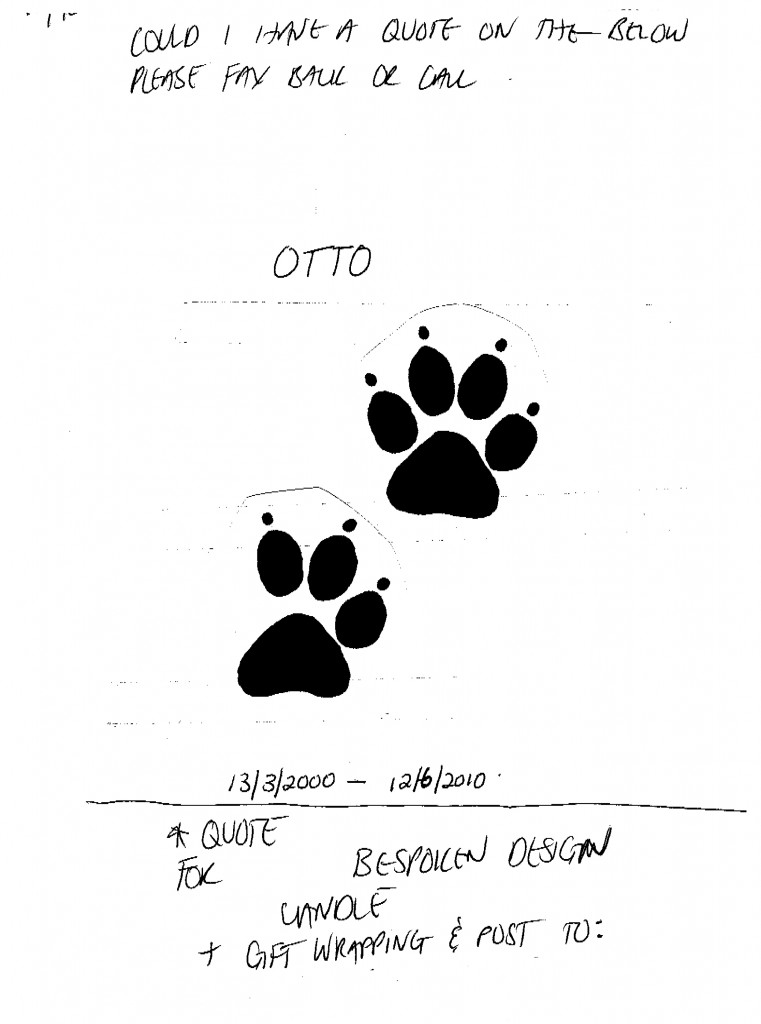 COULD I HAVE A QUOTE ON THE BELOW
PLEASE FAX BACK OR CALL
OTTO
13/3/2000 – 12/6/2010
* QUOTE
FOR BESPOKEN DESIGN
CANDLE
+ GIFT WRAPPING & POST TO: